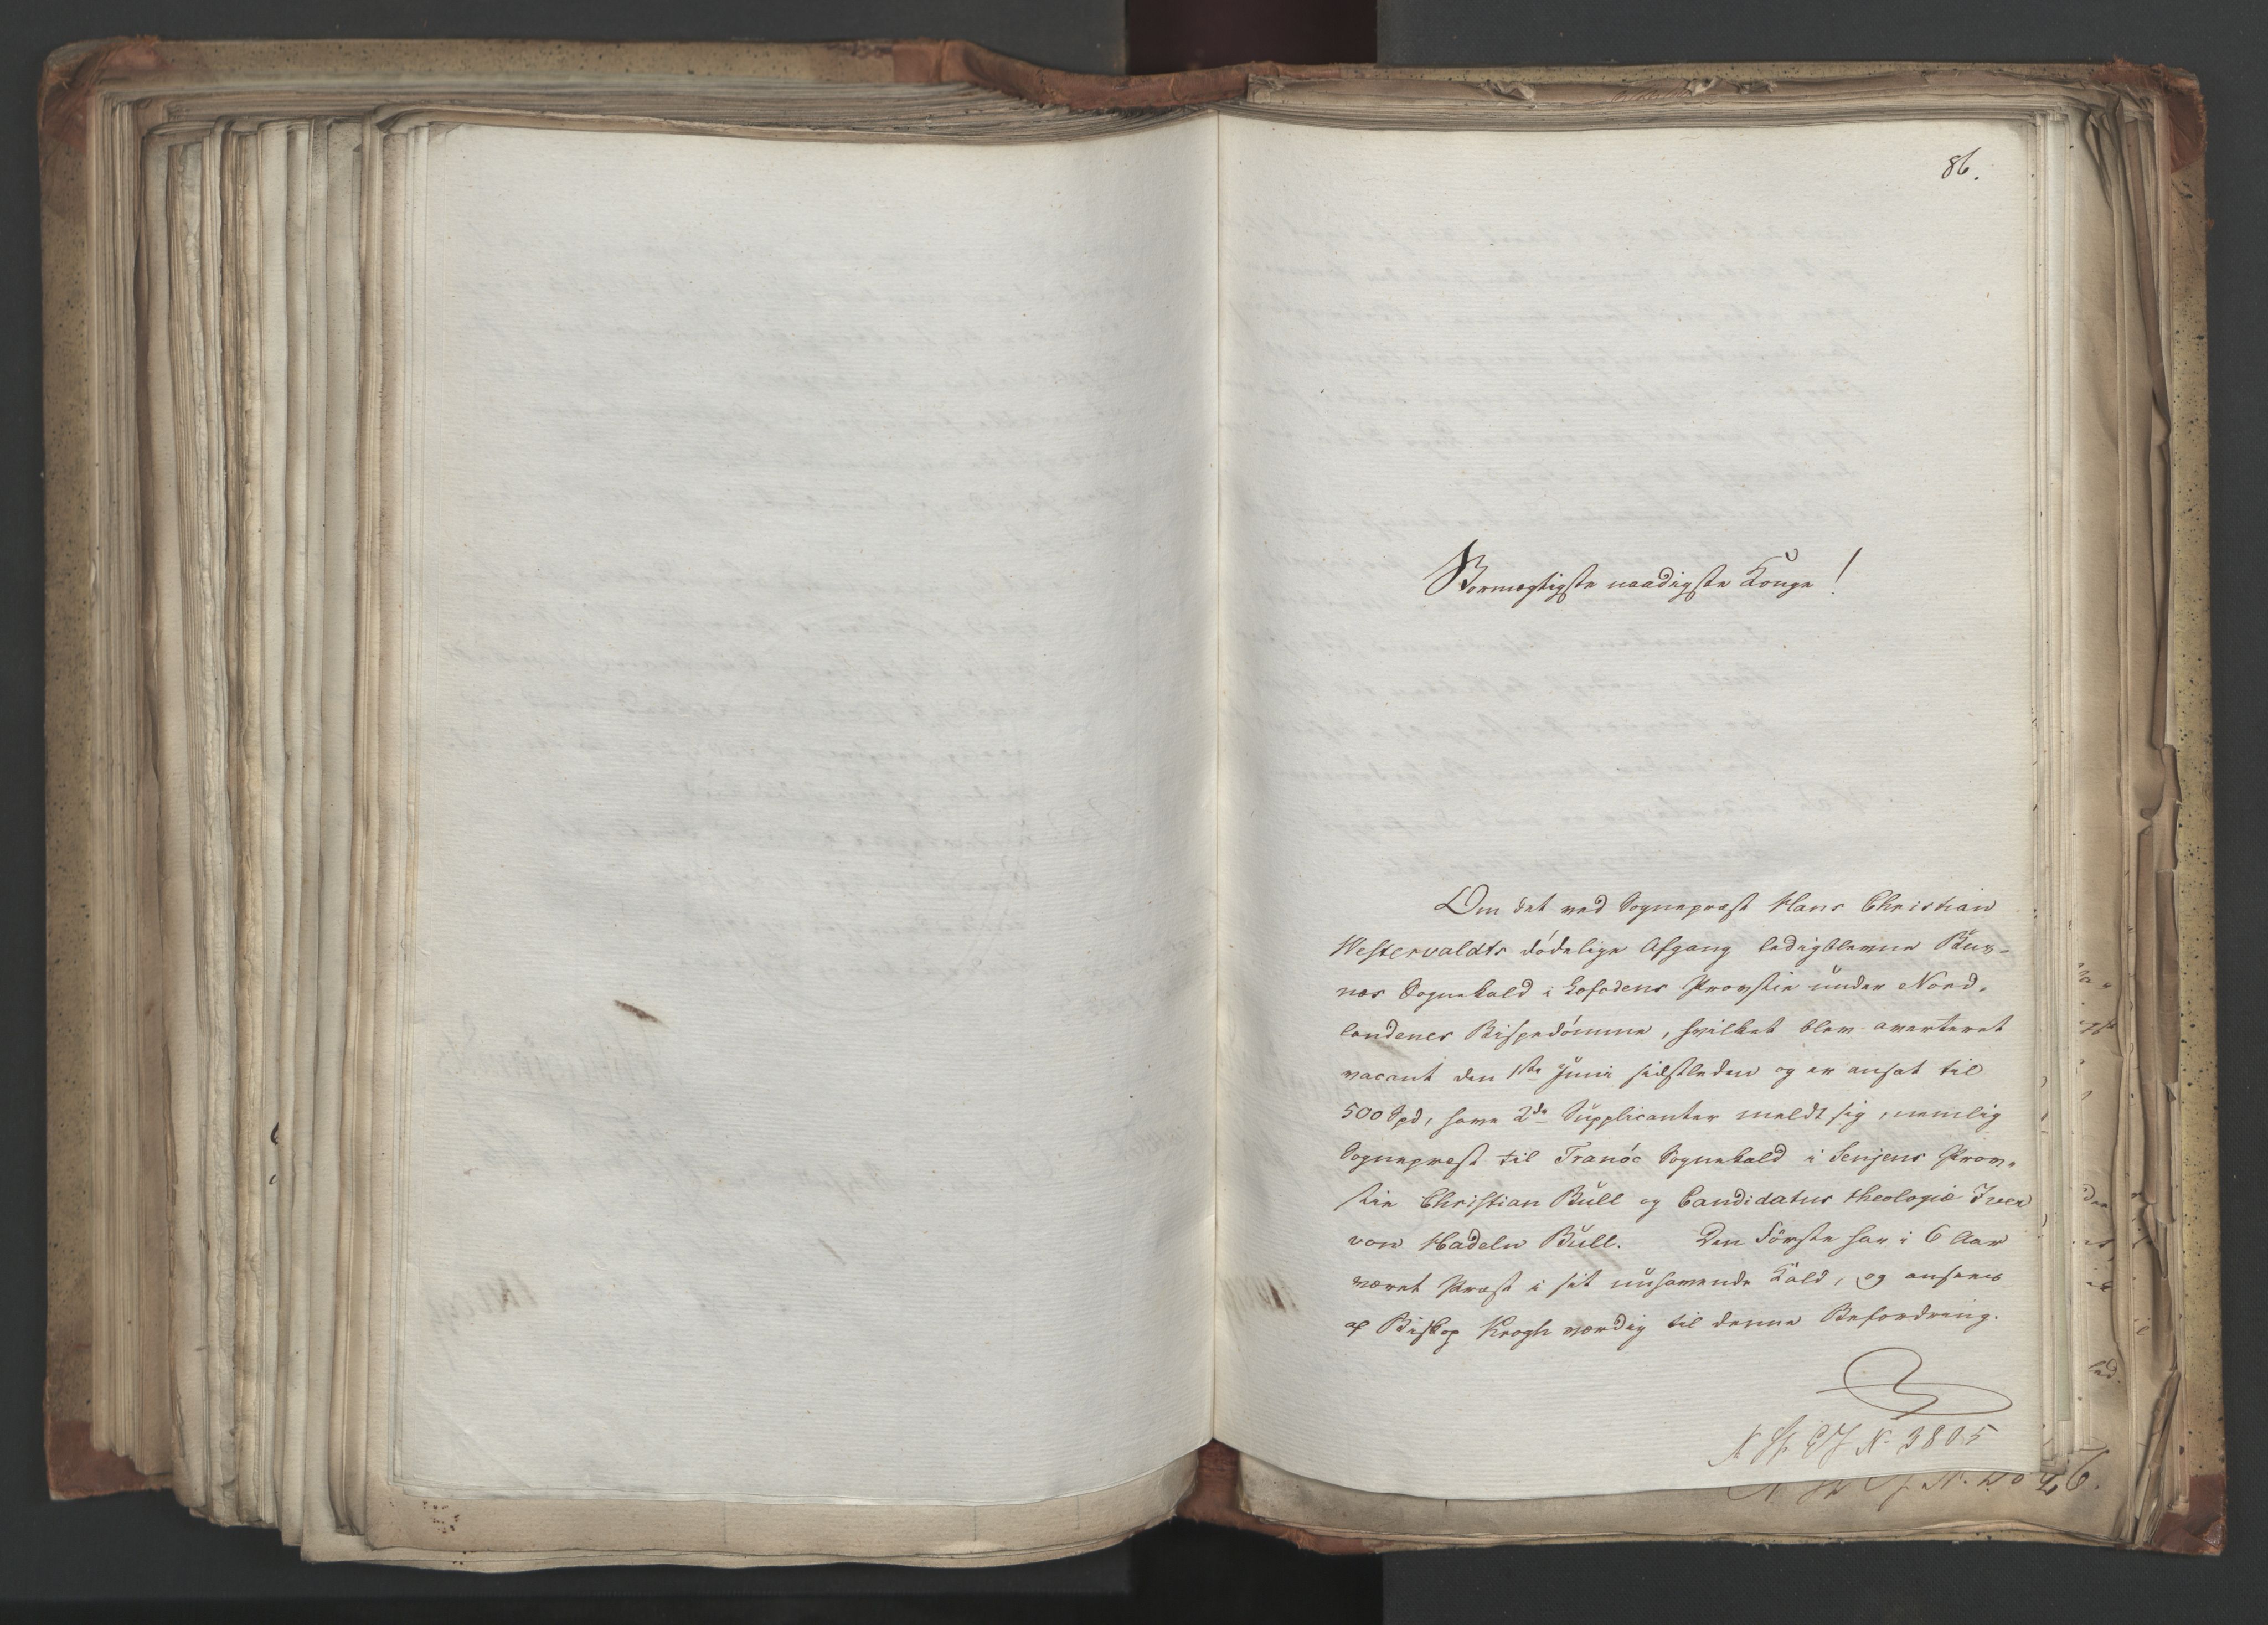 86.
Stormægtigste naadigste Konge!
Om det ved Sognepræst Hans Christian
Westervaldts dödelige Afgang ledigblevne Bux-
næs Sognekald i Lofodens Provstie under Nord-
landenes Bispedömme, hvilket blev averteret
vacant den 1ste Juni sidstleden og er ansat til
500 Spd, have 2de Supplicanter meldt sig, nemlig
Sognepræst til Tranöe Sognekald i Senjens Prov-
stie Christian Bull og Candidatus theologiæ Iver
von Hadeln Bull. Den Förste har i 6 Aar
været Præst i sit nuhavende Kald, og ansees
af Biskop Krogh værdig til denne Befordring.
N 3805